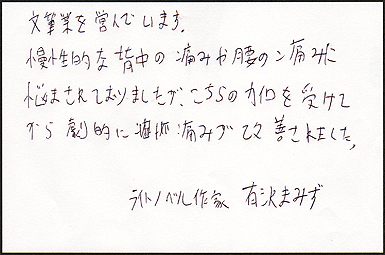 文筆業を営んでいます。
慢性的な背中の痛みや腰の痛みに
悩まされておりましたが、こちらのカイロを受けて
から劇的に 痛みが改善されました。
ライトノベル作家 有沢まみず